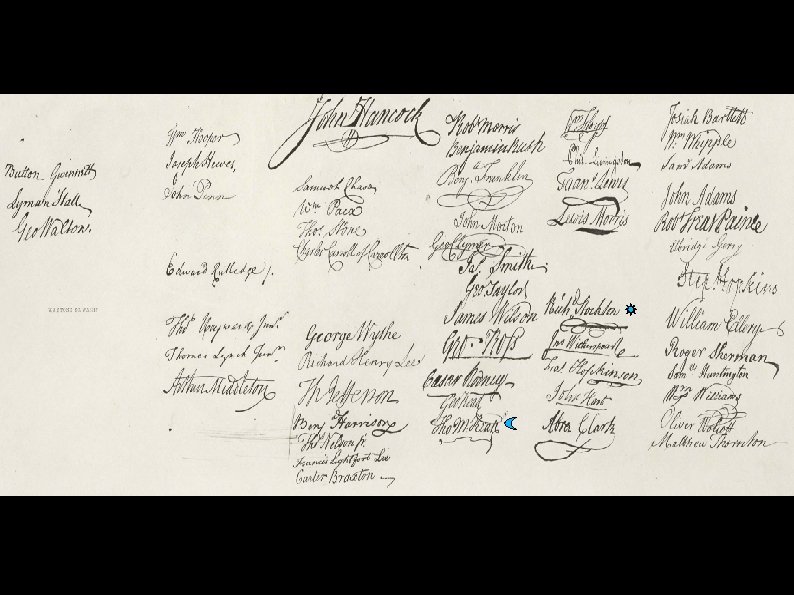 Button Gwinnett
Lyman Hall
Geo Walton.
Wm Hooper
Joseph Hewes,
John Penn
Edward Rutledge /.
Thos Heyward Junr.
Thomas Lynch Junr.
Arthur Middleton
John Hancock
Samuel Chase
Wm. Paca
Thos. Stone
Charles Carroll of Carrollton
George Wythe
Richard Henry Lee
Th Jefferson
Benj Harrison
Thos Nelson jr.
Francis Lightfoot Lee
Carter Braxton
Robt Morris
Benjamin Rush
Benj. Franklin
John Morton
Geo Clymer
Jas. Smith
Geo. Taylor
James Wilson
Geo. Ross
Caesar Rodney
Geo Read
Tho M:Kean
Wm Floyd
Phil. Livingston
Frans. Lewis
Lewis Morris
Richd. Stockton
Jno Witherspoon
Fras. Hopkinson
John Hart
Abra Clark
Josiah Bartlett
Wm: Whipple
Saml Adams
John Adams
Robt Treat Paine
Elbridge Gerry
Step. Hopkins
William Ellery
Roger Sherman
Saml Huntington
Wm. Williams
Oliver Wolcott
Matthew Thornton